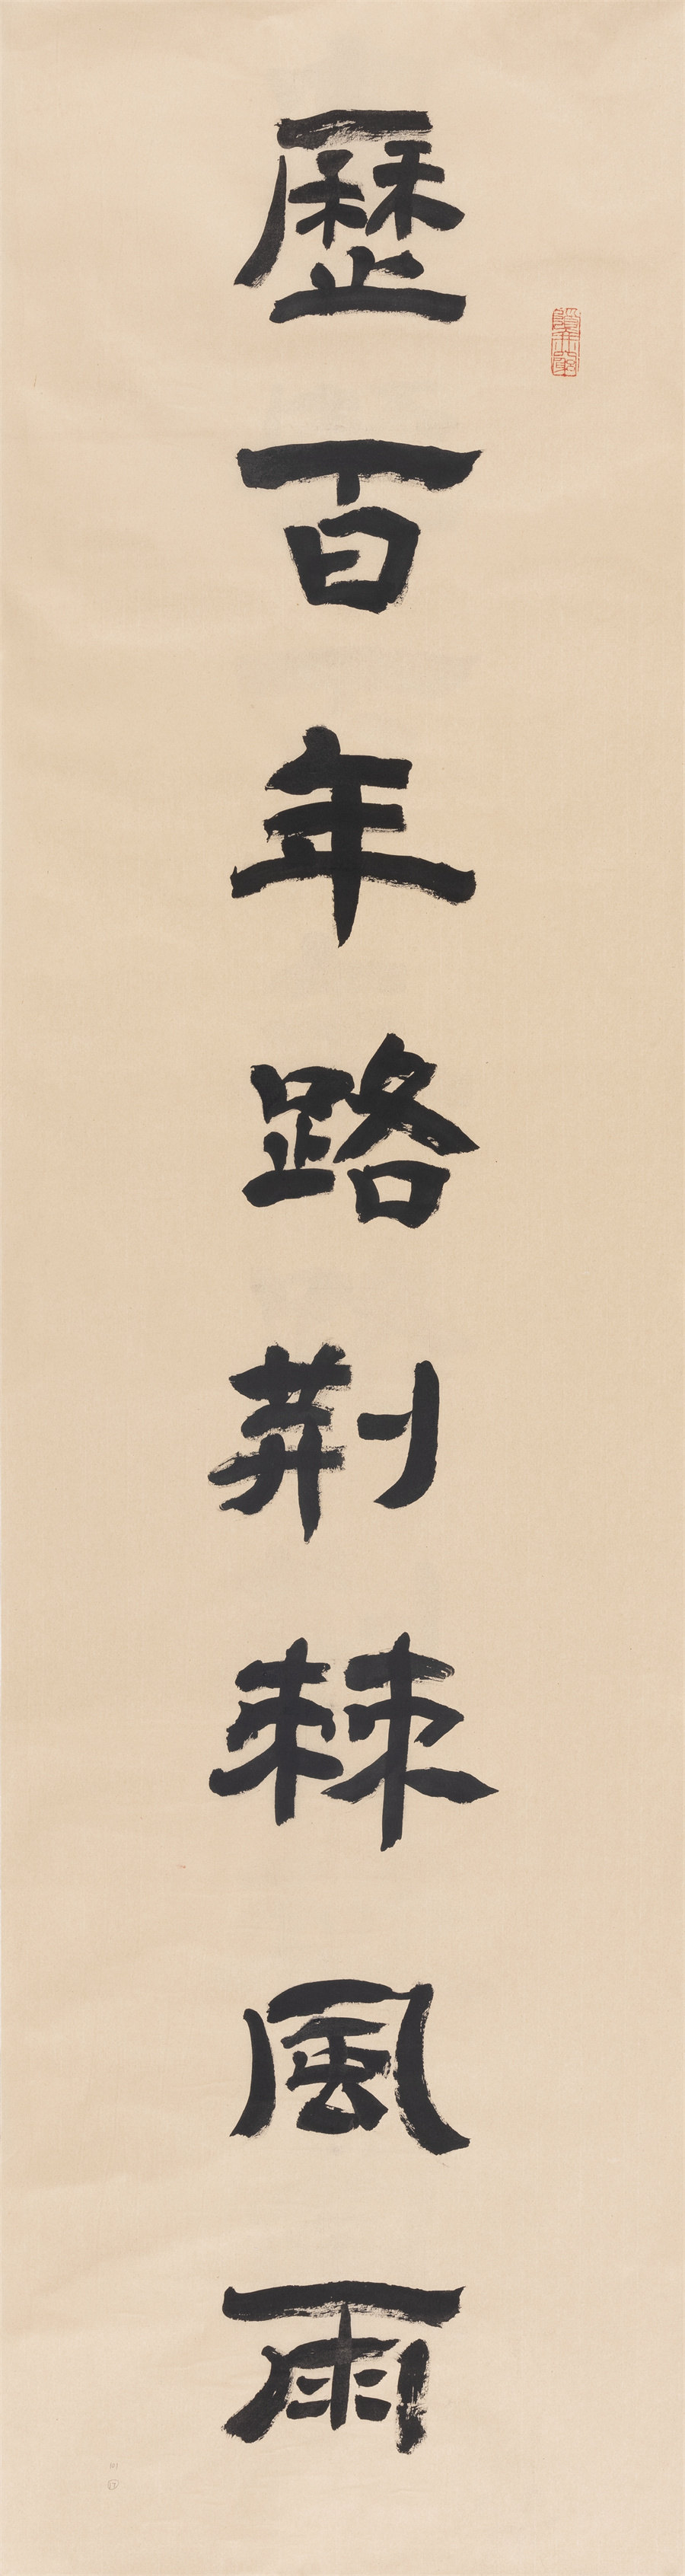 歷百年路荆棘風雨